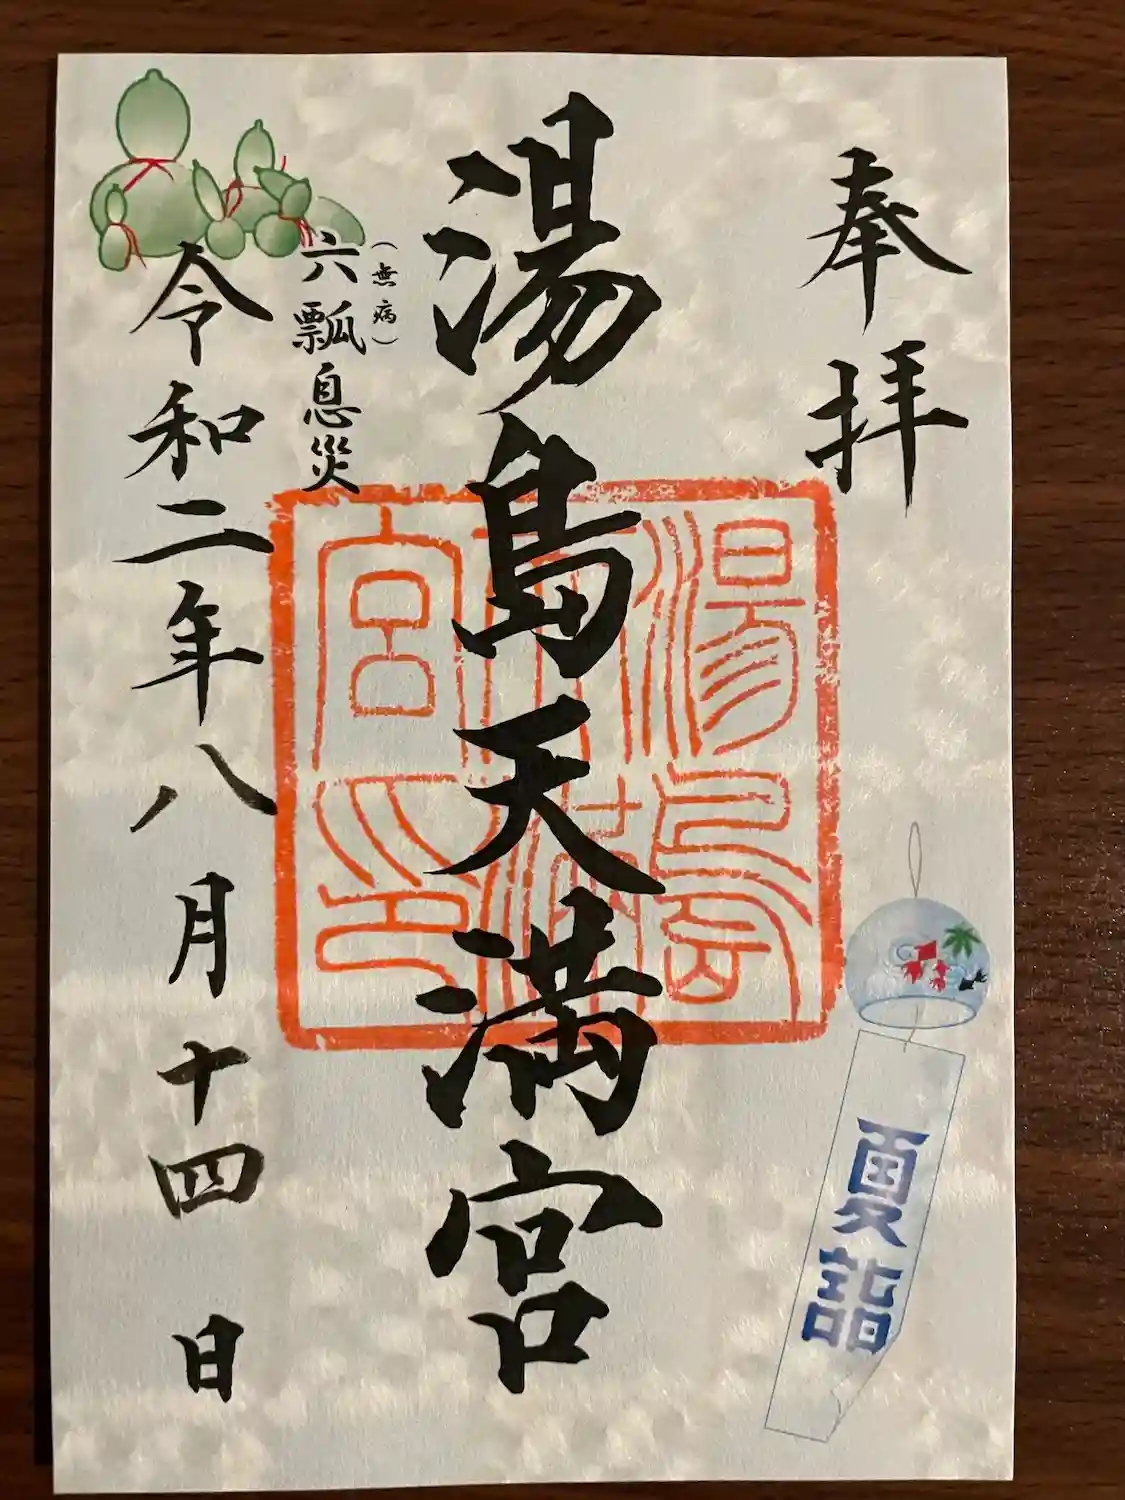 奉拝
夏詣
湯島天満宮
湯島天満宮印
（無病）
六瓢息災
令和二年八月十四日